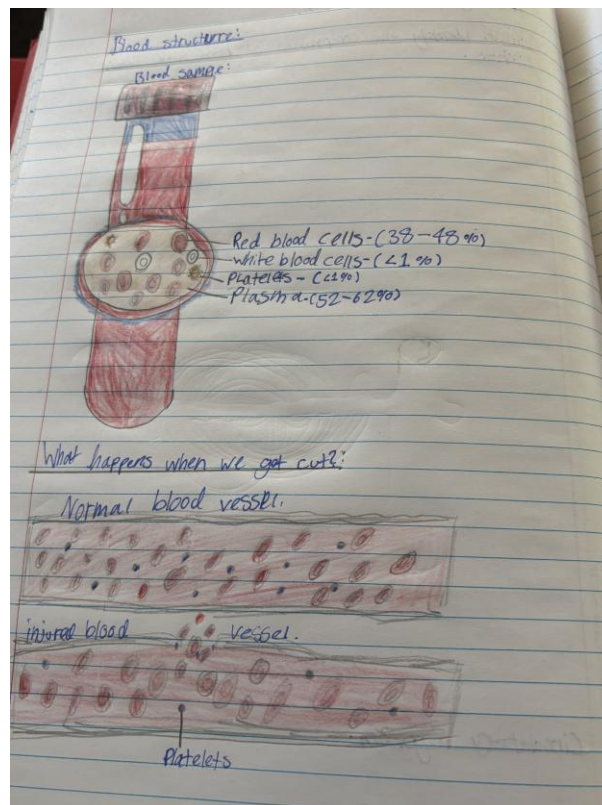 Blood structure:
Blood sample:
Red blood cells-(38-48%)
white blood cells-(<1%)
Platelets-(<1%)
Plasma-(52-62%)
What happens when we get cut?:
Normal blood vessel.
injured blood vessel.
Platelets